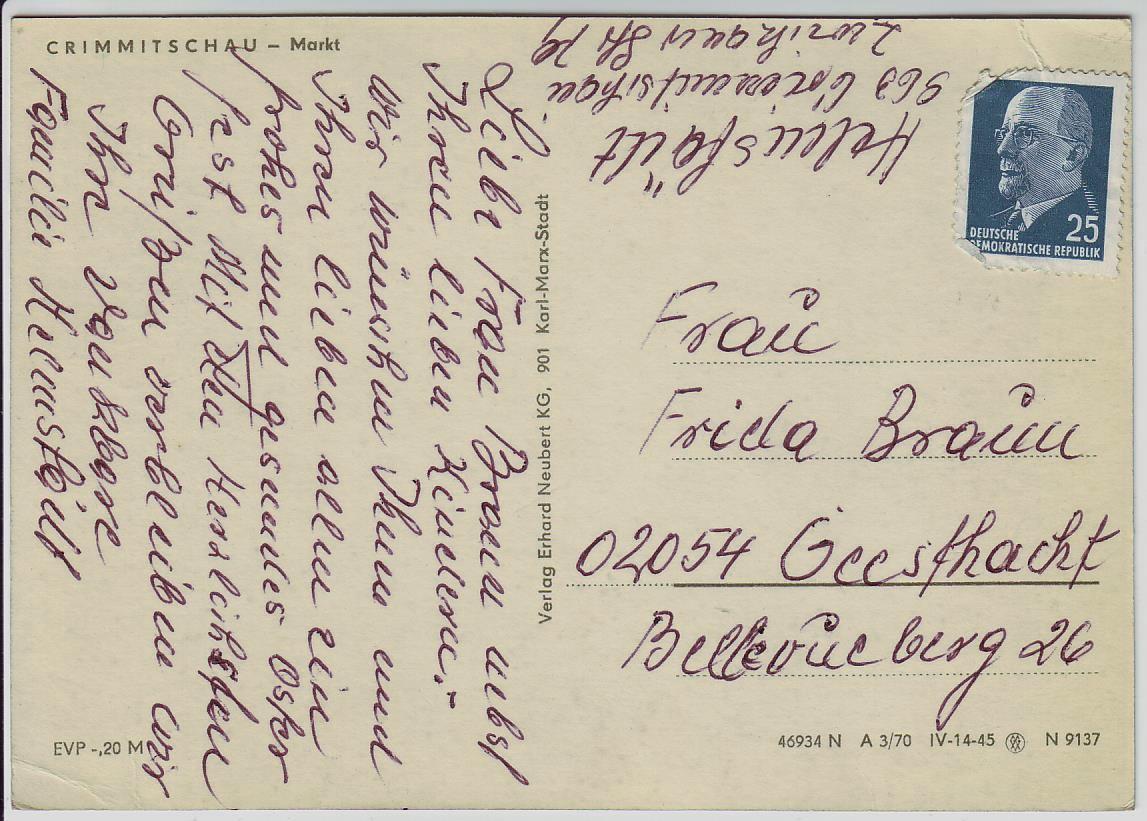 CRIMMITSCHAU – Markt
Helmstädt
963 Crimmitschau
Zwickauer Str 79
DEUTSCHE
DEMOKRATISCHE REPUBLIK
25
Liebe Frau Braun nebst
Ihren lieben Kindern.
Wir wünschen Ihnen und
Ihren lieben allen ein
frohes und gesundes Oster
fest Mit den Herzlichsten
verbleiben wir
Ihre Dankbare
Familie Helmstädt
Verlag Erhard Neubert KG, 901 Karl-Marx-Stadt
Frau
Frida Braun
02054 Geesthacht
Bellevueberg 26
EVP -,20 M
46934 N A 3/70 IV-14-45 N 9137